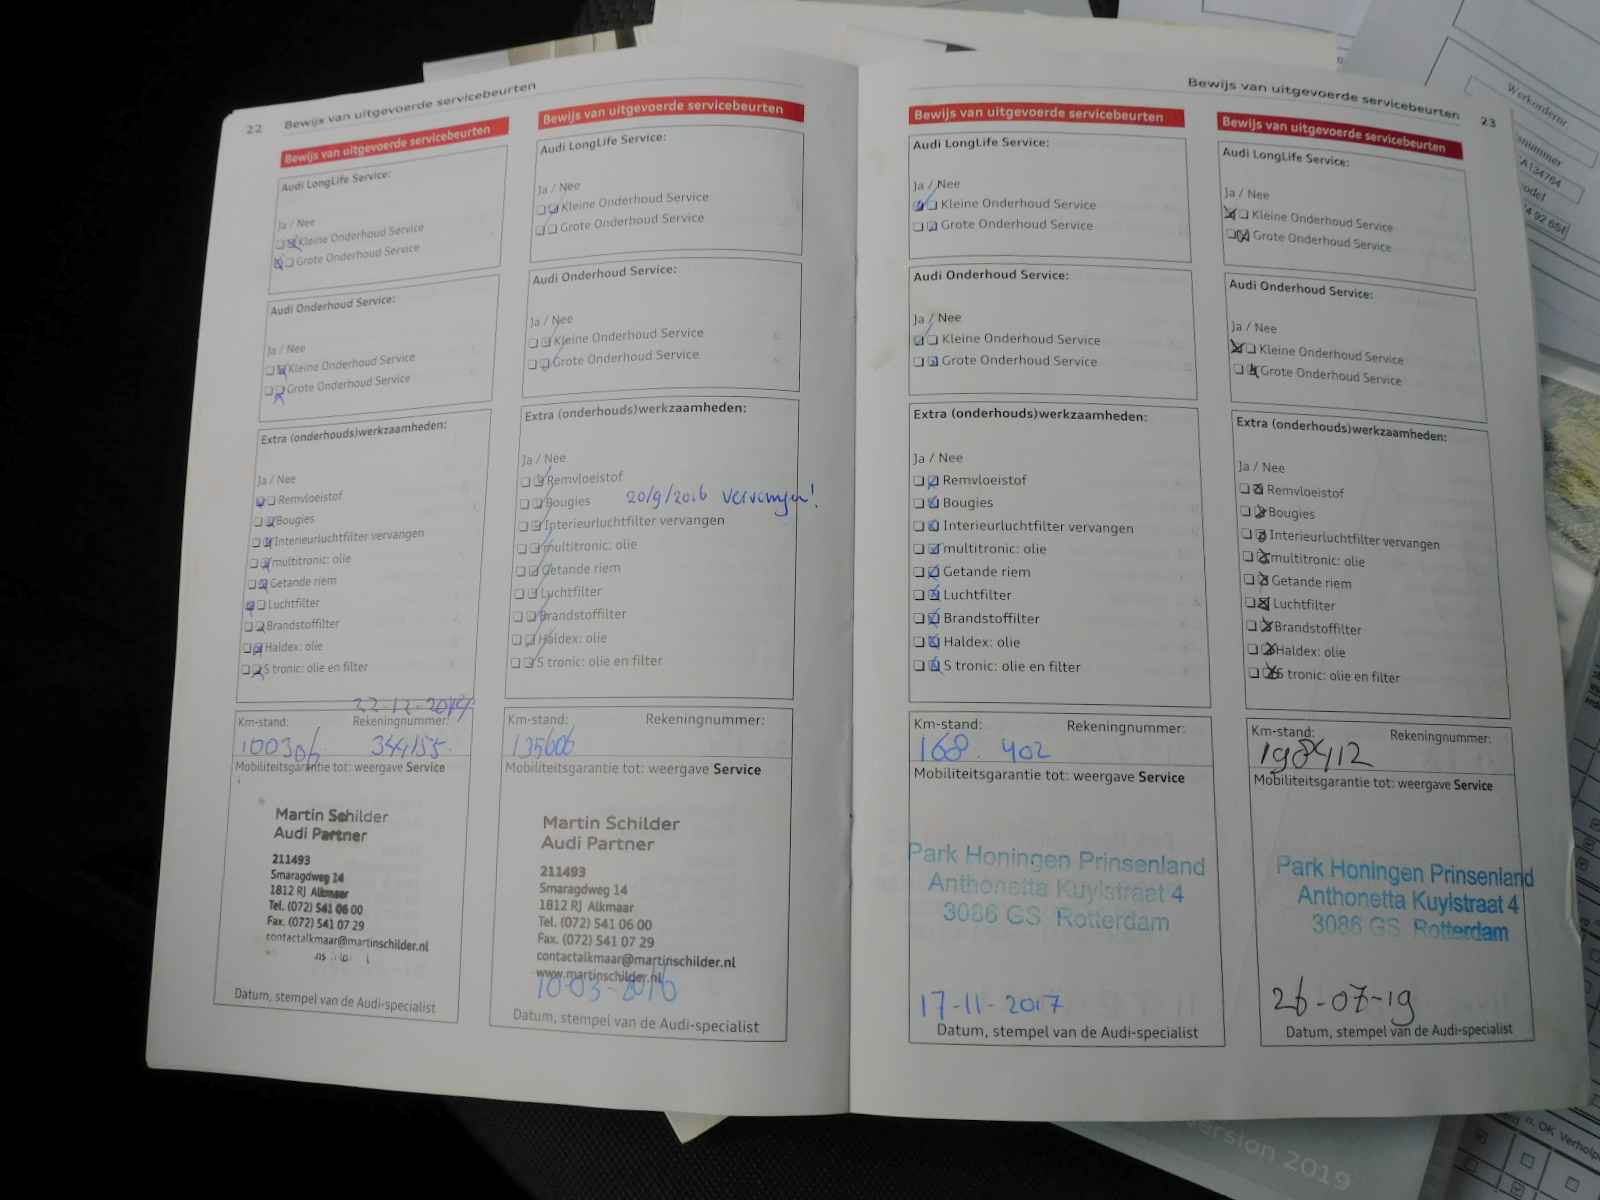 22 Bewijs van uitgevoerde servicebeurten
Bewijs van uitgevoerde servicebeurten
Audi LongLife Service:
Ja / Nee
Kleine Onderhoud Service
Grote Onderhoud Service
Audi Onderhoud Service:
Ja / Nee
Kleine Onderhoud Service
Grote Onderhoud Service
Extra (onderhouds)werkzaamheden:
Ja / Nee
Remvloeistof
Bougies
Interieurluchtfilter vervangen
multitronic: olie
Getande riem
Luchtfilter
Brandstoffilter
Haldex: olie
S tronic: olie en filter
22-12-2014
Km-stand: Rekeningnummer:
100306 344155
Mobiliteitsgarantie tot: weergave Service
Martin Schilder
Audi Partner
211493
Smaragdweg 14
1812 RJ Alkmaar
Tel. (072) 541 06 00
Fax. (072) 541 07 29
contactalkmaar@martinschilder.nl
Datum, stempel van de Audi-specialist
Bewijs van uitgevoerde servicebeurten
Audi LongLife Service:
Ja / Nee
Kleine Onderhoud Service
Grote Onderhoud Service
Audi Onderhoud Service:
Ja / Nee
Kleine Onderhoud Service
Grote Onderhoud Service
Extra (onderhouds)werkzaamheden:
Ja / Nee
Remvloeistof
Bougies 20/9/2016 vervangen!
Interieurluchtfilter vervangen
multitronic: olie
Getande riem
Luchtfilter
Brandstoffilter
Haldex: olie
S tronic: olie en filter
Km-stand: Rekeningnummer:
135606
Mobiliteitsgarantie tot: weergave Service
Martin Schilder
Audi Partner
211493
Smaragdweg 14
1812 RJ Alkmaar
Tel. (072) 541 06 00
Fax. (072) 541 07 29
contactalkmaar@martinschilder.nl
www.martinschilder.nl
10-03-2016
Datum, stempel van de Audi-specialist
Bewijs van uitgevoerde servicebeurten 23
Bewijs van uitgevoerde servicebeurten
Audi LongLife Service:
Ja / Nee
Kleine Onderhoud Service
Grote Onderhoud Service
Audi Onderhoud Service:
Ja / Nee
Kleine Onderhoud Service
Grote Onderhoud Service
Extra (onderhouds)werkzaamheden:
Ja / Nee
Remvloeistof
Bougies
Interieurluchtfilter vervangen
multitronic: olie
Getande riem
Luchtfilter
Brandstoffilter
Haldex: olie
S tronic: olie en filter
Km-stand: Rekeningnummer:
168.402
Mobiliteitsgarantie tot: weergave Service
Park Honingen Prinsenland
Anthonetta Kuylstraat 4
3086 GS Rotterdam
17-11-2017
Datum, stempel van de Audi-specialist
Bewijs van uitgevoerde servicebeurten
Audi LongLife Service:
Ja / Nee
Kleine Onderhoud Service
Grote Onderhoud Service
Audi Onderhoud Service:
Ja / Nee
Kleine Onderhoud Service
Grote Onderhoud Service
Extra (onderhouds)werkzaamheden:
Ja / Nee
Remvloeistof
Bougies
Interieurluchtfilter vervangen
multitronic: olie
Getande riem
Luchtfilter
Brandstoffilter
Haldex: olie
S tronic: olie en filter
Km-stand: Rekeningnummer:
198412
Mobiliteitsgarantie tot: weergave Service
Park Honingen Prinsenland
Anthonetta Kuylstraat 4
3086 GS Rotterdam
26-07-19
Datum, stempel van de Audi-specialist
Werkordernr
snummer
A134764
odel
4 92 651
version 2019
n. OK Verholp